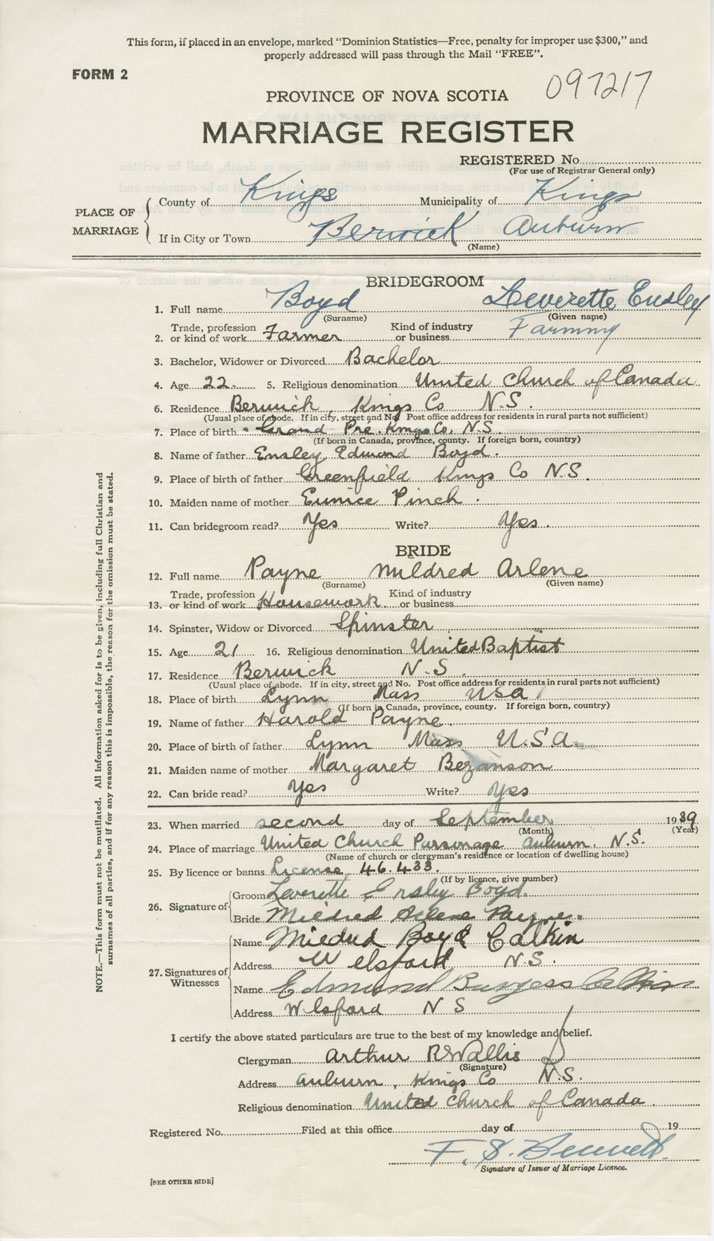 This form, if placed in an envelope, marked "Dominion Statistics—Free, penalty for improper use $300," and
properly addressed will pass through the Mail "FREE".
FORM 2
097217
PROVINCE OF NOVA SCOTIA
MARRIAGE REGISTER
REGISTERED No.
(For use of Registrar General only)
PLACE OF MARRIAGE
County of Kings Municipality of Kings
If in City or Town Berwick Auburn
(Name)
BRIDEGROOM
1. Full name Boyd Leverette Ensley
(Surname) (Given name)
2. Trade, profession or kind of work Farmer Kind of industry or business Farming
3. Bachelor, Widower or Divorced Bachelor
4. Age 22 5. Religious denomination United Church of Canada
6. Residence Berwick, Kings Co N.S.
(Usual place of abode. If in city, street and No. Post office address for residents in rural parts not sufficient)
7. Place of birth Grand Pre. Kings Co, N.S.
(If born in Canada, province, county. If foreign born, country)
8. Name of father Ensley Edmund Boyd.
9. Place of birth of father Greenfield Kings Co N.S.
10. Maiden name of mother Eunice Pinch.
11. Can bridegroom read? Yes Write? Yes.
BRIDE
12. Full name Payne Mildred Arlene
(Surname) (Given name)
13. Trade, profession or kind of work Housework Kind of industry or business
14. Spinster, Widow or Divorced Spinster
15. Age 21 16. Religious denomination United Baptist
17. Residence Berwick N.S.
(Usual place of abode. If in city, street and No. Post office address for residents in rural parts not sufficient)
18. Place of birth Lynn Mass USA
(If born in Canada, province, county. If foreign born, country)
19. Name of father Harold Payne
20. Place of father Lynn Mass U.S.A.
21. Maiden name of mother Margaret Bezanson
22. Can bride read? Yes Write? Yes
23. When married second day of September 1939
(Month) (Year)
24. Place of marriage United Church Parsonage Auburn, N.S.
(Name of church or clergyman's residence or location of dwelling house)
25. By licence or banns License 46.433.
(If by licence, give number)
26. Signature of
Groom Leverette Ensley Boyd.
Bride Mildred Arlene Payne.
27. Signatures of Witnesses
Name Mildred Boyd Calkin
Address Welsford N.S.
Name Edmund Burgess Calkin
Address Wlsford N S
I certify the above stated particulars are true to the best of my knowledge and belief.
Clergyman Arthur R Wallis
(Signature)
Address Auburn, Kings Co N.S.
Religious denomination United Church of Canada.
Registered No. Filed at this office day of 19
F. S. Bennett
Signature of Issuer of Marriage Licence.
[SEE OTHER SIDE]
NOTE.—This form must not be mutilated. All information asked for is to be given, including full Christian and
surnames of all parties, and if for any reason this is impossible, the reason for the omission must be stated.